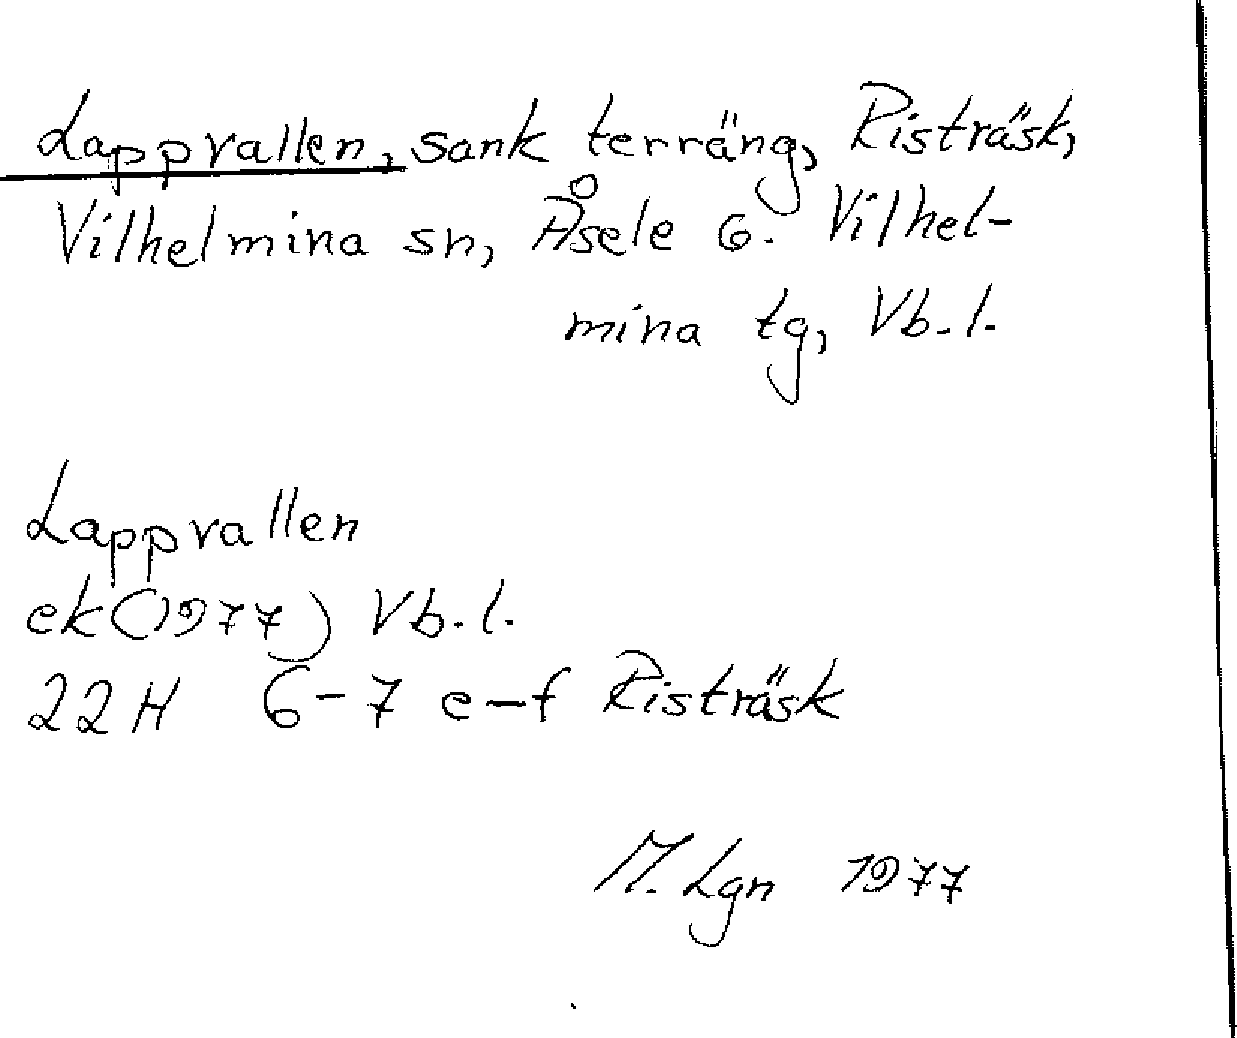 Lappvallen, sank terräng, Risträsk,
Vilhelmina sn, Åsele G. Vilhel-
mina tg, Vb. l.
Lappvallen
ek (1977) Vb. l.
22 H 6-7 e-f Risträsk
M. Lgn 1977